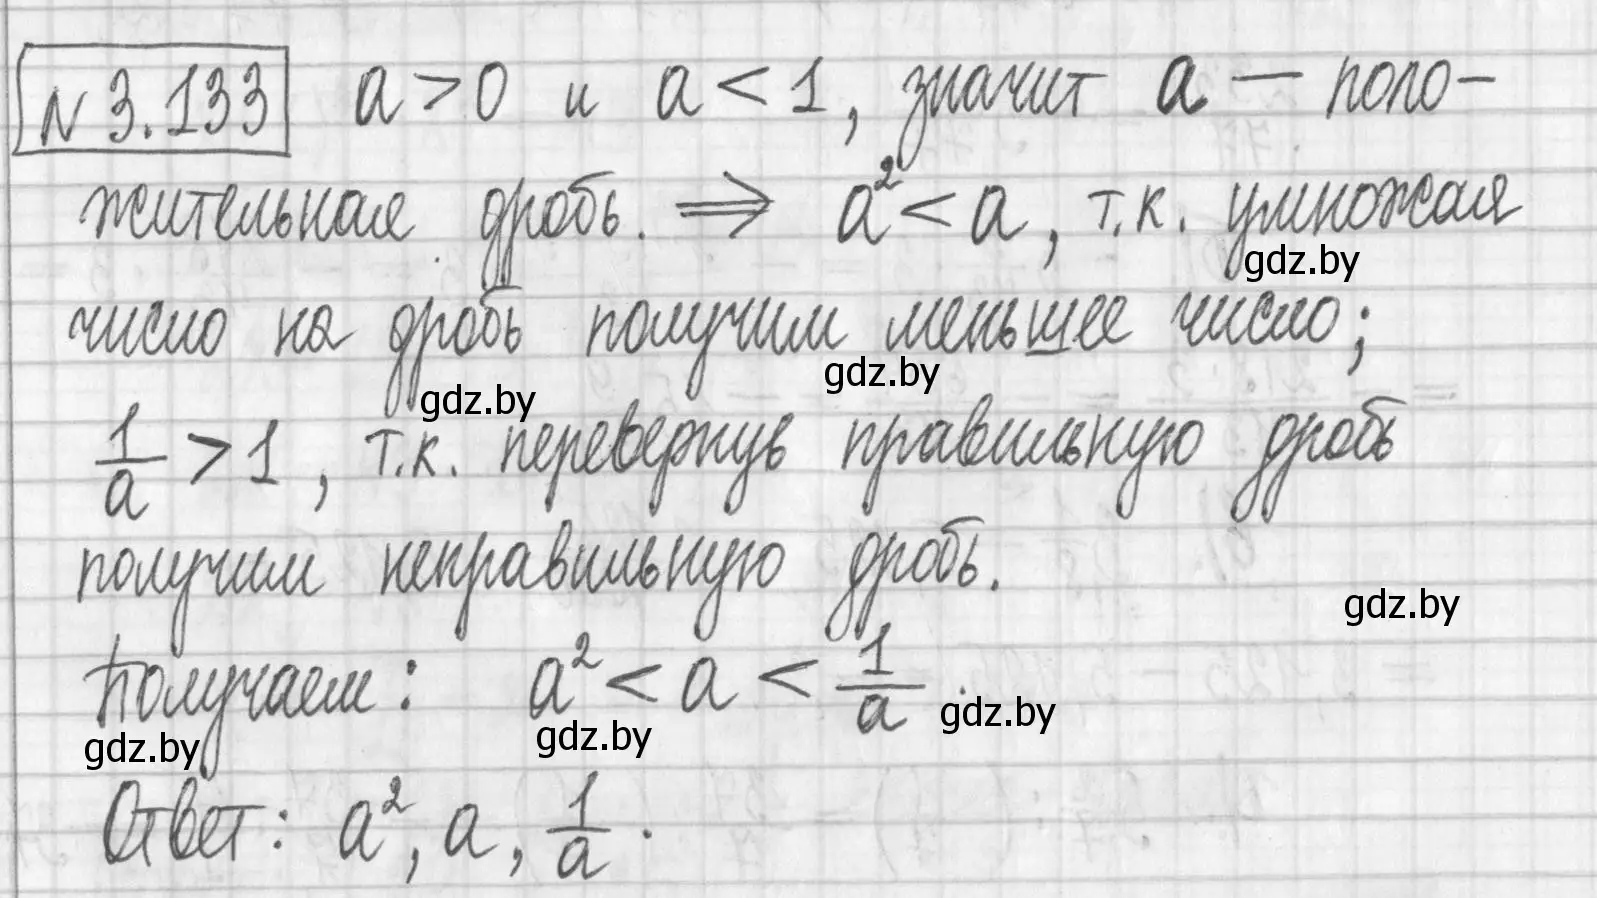 N 3.133 a > 0 и a < 1, значит a — поло-
жительная дробь. ⇒ a² < a, т.к. умножая
gdz.by
число на дробь получим меньшее число;
gdz.by
gdz.by
1/a > 1, т.к. перевернув правильную дробь
получим неправильную дробь.
gdz.by
Получаем: a² < a < 1/a.
gdz.by
gdz.by
gdz.by
Ответ: a², a, 1/a.